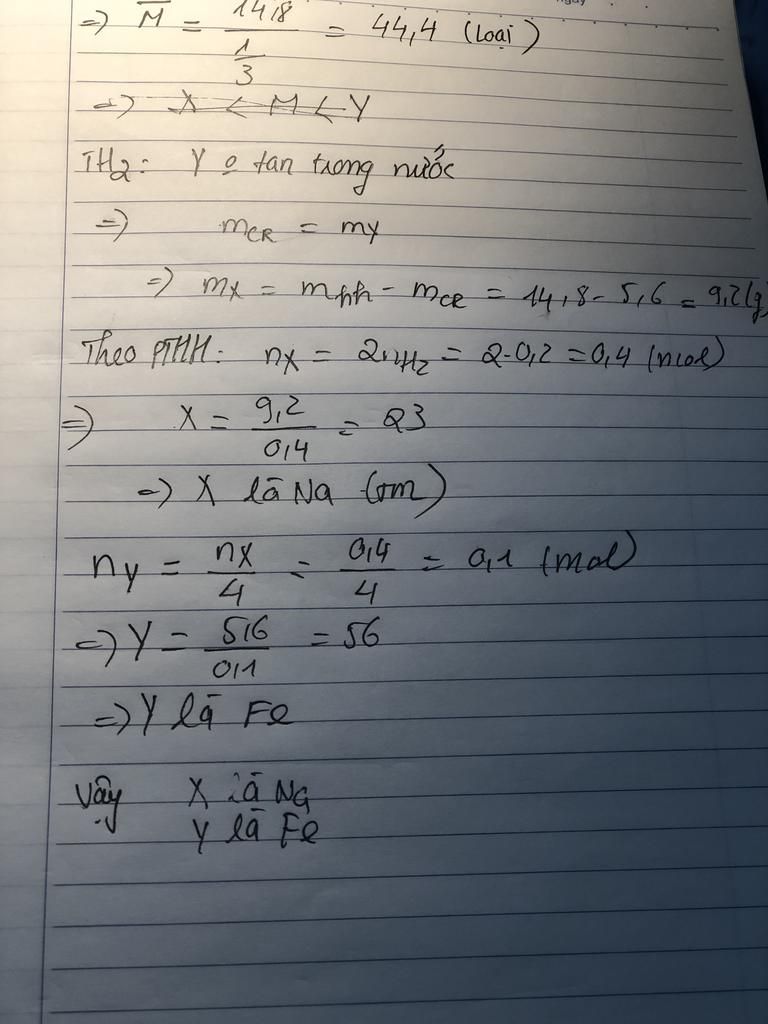 ⇒ M̅ = 14,8 / (1/3) = 44,4 (loại)
⇒ X < M < Y
TH2: Y o tan trong nước
⇒ mCR = mY
⇒ mX = mhh - mCR = 14,8 - 5,6 = 9,2 (g)
Theo PTHH: nX = 2nH2 = 2.0,2 = 0,4 (mol)
⇒ X = 9,2 / 0,4 = 23
⇒ X là Na (tm)
nY = nX / 4 = 0,4 / 4 = 0,1 (mol)
⇒ Y = 5,6 / 0,1 = 56
⇒ Y là Fe
Vậy X là Na
Y là Fe